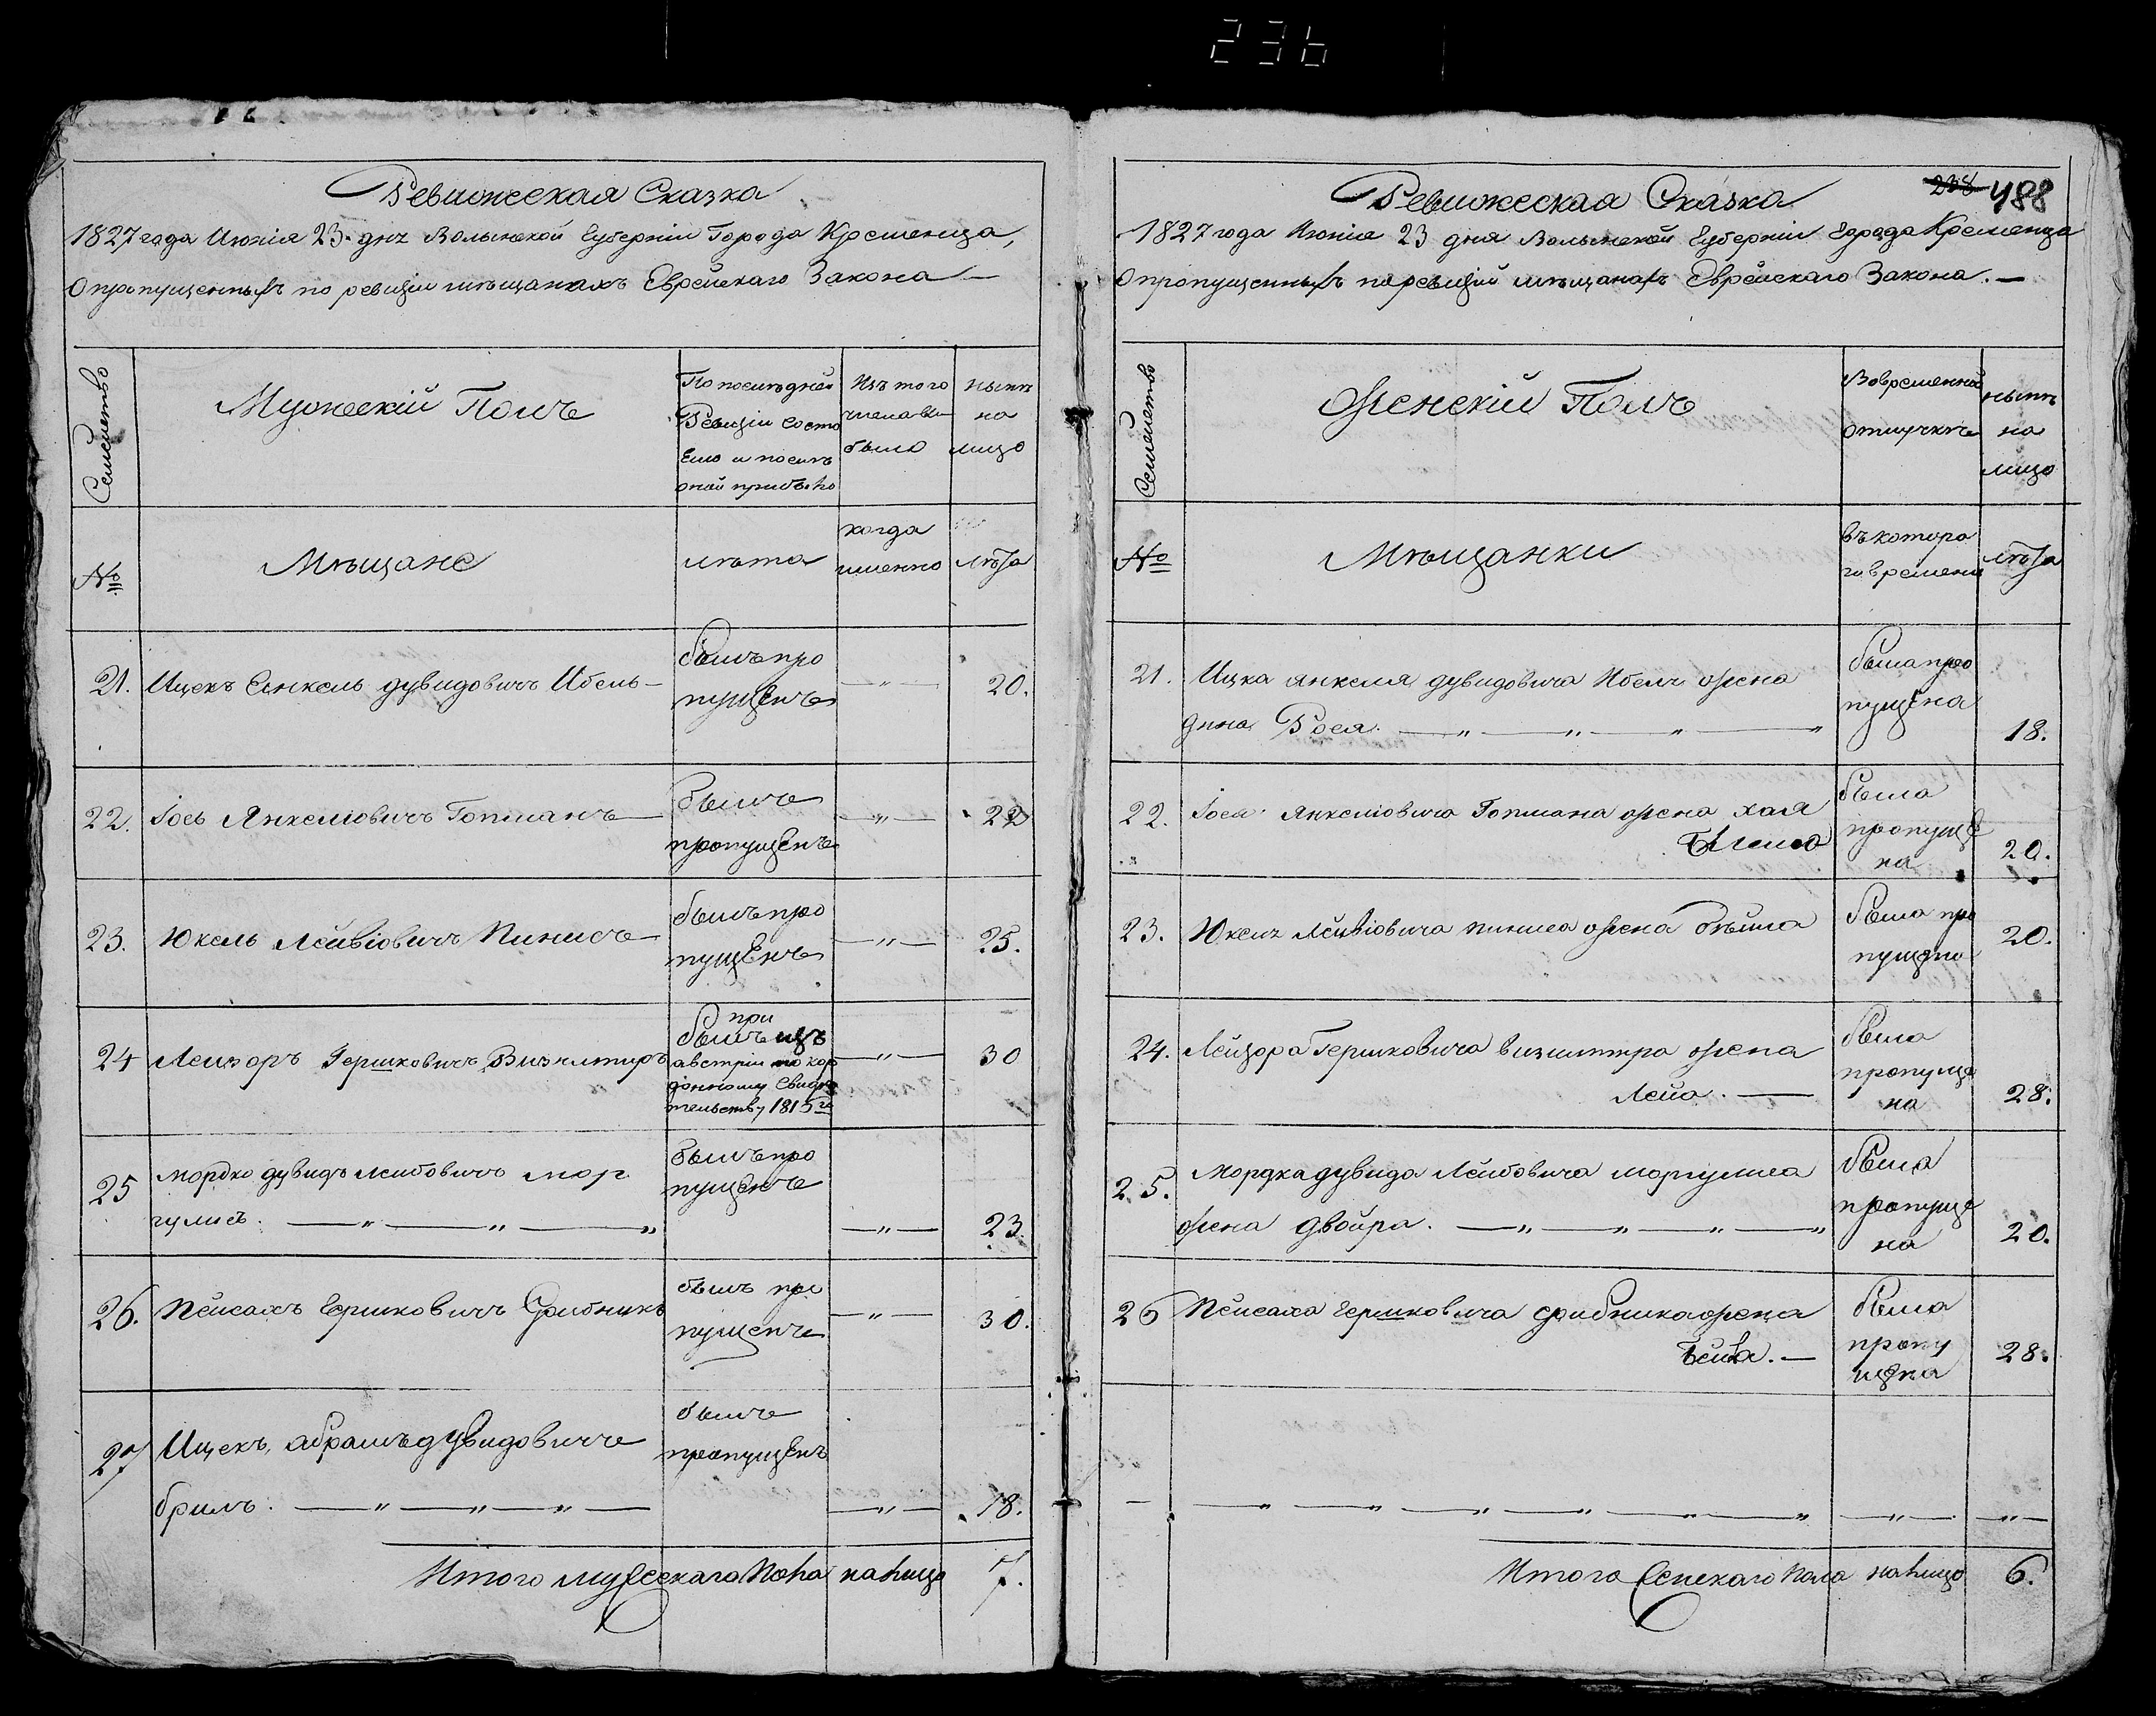 236
Ревижеская Сказка
1827 года Июнія 23. дня Волынской Губерніи Города Кременца,
О пропущенныхъ по ревизіи мѣщанахъ Еврейскаго Закона —
Семейство
Мужескій Полъ
По послѣдней
Ревизіи Состо
яло и послѣ
оной прибыло
Изъ того
числа вы
было
нынѣ
на
лицо
№
Мѣщане
лѣта
когда
именно
лѣта
21. Ицекъ Енкель дувидовичъ Ибель —
былъ про
пущенъ
— " —
20.
22. Іось Янкеліовичъ Гопманъ —
былъ
пропущенъ
— " —
22
23. Юкель Лейвіовичъ Пинисъ —
былъ про
пущенъ
— " —
25.
24 Лейзоръ Гершковичъ Визылтиръ
при
былъ изъ
австріи по кор
донному свидѣ
тельству 1815 го
— " —
30
25 мордко дувидъ Лейбовичъ мор
гулисъ. — " — " — "
былъ про
пущенъ
— " —
23.
26. Пейсахъ Гершковичъ Срибникъ
былъ про
пущенъ
— " —
30.
27 Ицекъ абрамъ дувидовичъ
брилъ. — " — " — " —
былъ
пропущенъ
— " —
18.
Итого мужескаго Пола на лицо 7.
238 488
Ревижеская Сказка
1827 года Июнія 23 дня Волынской Губерніи Города Кременца
О пропущенныхъ по ревизіи мѣщанахъ Еврейскаго Закона. —
Семейство
Женскій Полъ
Во временной
отлучкѣ
нынѣ
на
лицо
№
Мѣщанки
въ которо
го времени
лѣта
21. Ицка янкеля дувидовича Ибель жена
дина Рося. — " — " — " — "
была про
пущена
18.
22. Іося Янкеліовича Гопмана жена хая
Блюма
была
пропуще
на
20.
23. Юкеля Лейвіовича пиниса жена бѣйла
была про
пущена
20.
24. Лейзора Гершковича визылтира жена
Лейа. —
была
пропуще
на
28.
25. Мордка дувида Лейбовича моргулиса
жена двойра. — " — " — " — "
была
пропуще
на
20.
26 Пейсаха гершковича срибника жена
Бейла. —
была
пропу
щена
28.
— — " — " — " — " — " — " — " — — " —
Итого Женскаго Пола на лицо 6.